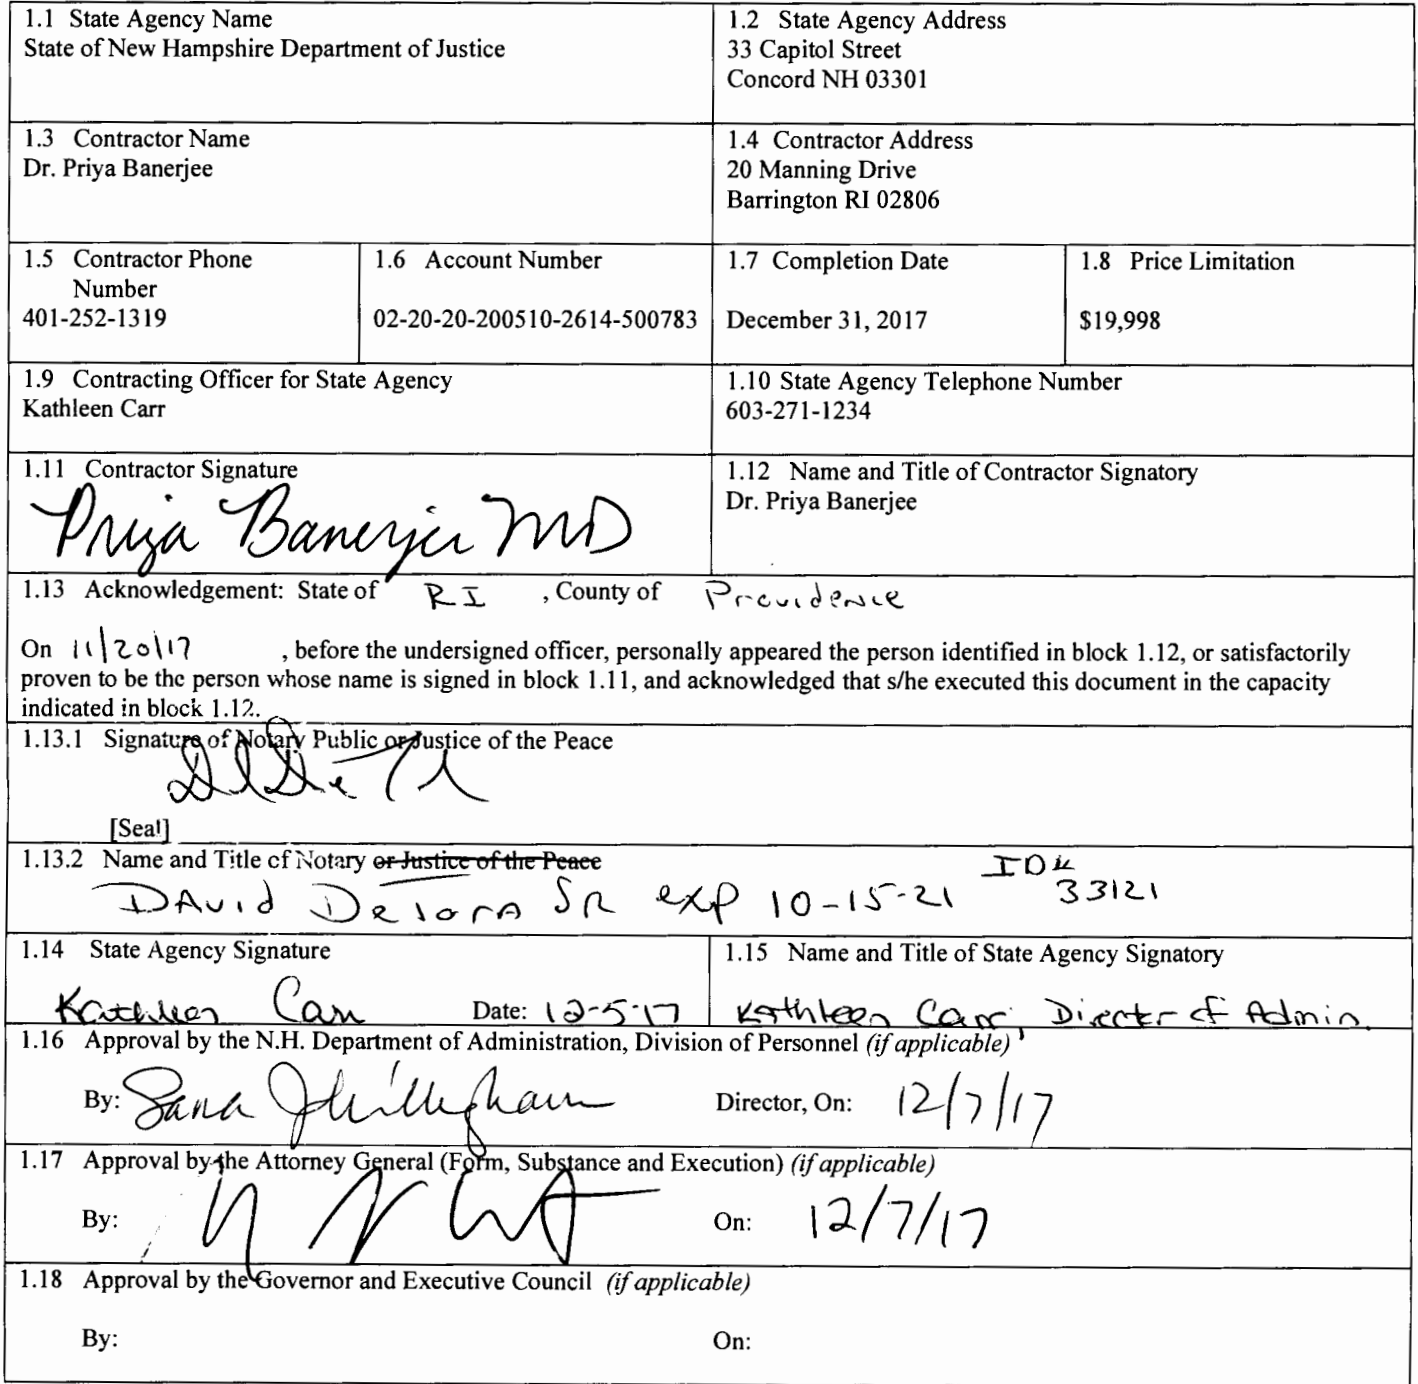 1.1 State Agency Name
State of New Hampshire Department of Justice
1.2 State Agency Address
33 Capitol Street
Concord NH 03301
1.3 Contractor Name
Dr. Priya Banerjee
1.4 Contractor Address
20 Manning Drive
Barrington RI 02806
1.5 Contractor Phone
Number
401-252-1319
1.6 Account Number
02-20-20-200510-2614-500783
1.7 Completion Date
December 31, 2017
1.8 Price Limitation
$19,998
1.9 Contracting Officer for State Agency
Kathleen Carr
1.10 State Agency Telephone Number
603-271-1234
1.11 Contractor Signature
Priya Banerjee MD
1.12 Name and Title of Contractor Signatory
Dr. Priya Banerjee
1.13 Acknowledgement: State of RI , County of Providence
On 11/20/17 , before the undersigned officer, personally appeared the person identified in block 1.12, or satisfactorily
proven to be the person whose name is signed in block 1.11, and acknowledged that s/he executed this document in the capacity
indicated in block 1.12.
1.13.1 Signature of Notary Public or Justice of the Peace
[Seal]
1.13.2 Name and Title of Notary or Justice of the Peace
David SR exp 10-15-21 ID# 33121
1.14 State Agency Signature
Kathleen Carr Date: 12-5-17
1.15 Name and Title of State Agency Signatory
Kathleen Carr, Director of Admin.
1.16 Approval by the N.H. Department of Administration, Division of Personnel (if applicable)
By: Sara Director, On: 12/7/17
1.17 Approval by the Attorney General (Form, Substance and Execution) (if applicable)
By: On: 12/7/17
1.18 Approval by the Governor and Executive Council (if applicable)
By: On: